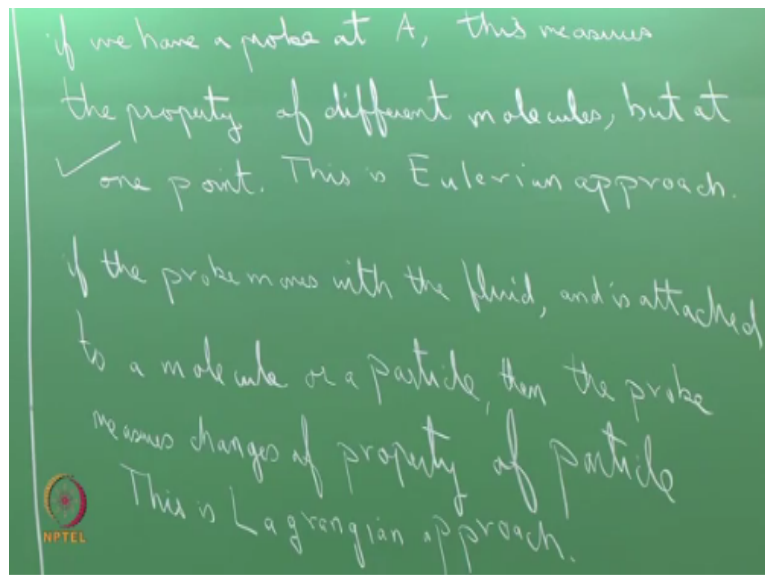 if we have a probe at A, this measures
the property of different molecules, but at
one point. This is Eulerian approach.
if the probe moves with the fluid, and is attached
to a molecule or a particle, then the probe
measures changes of property of particle
This is Lagrangian approach.
NPTEL